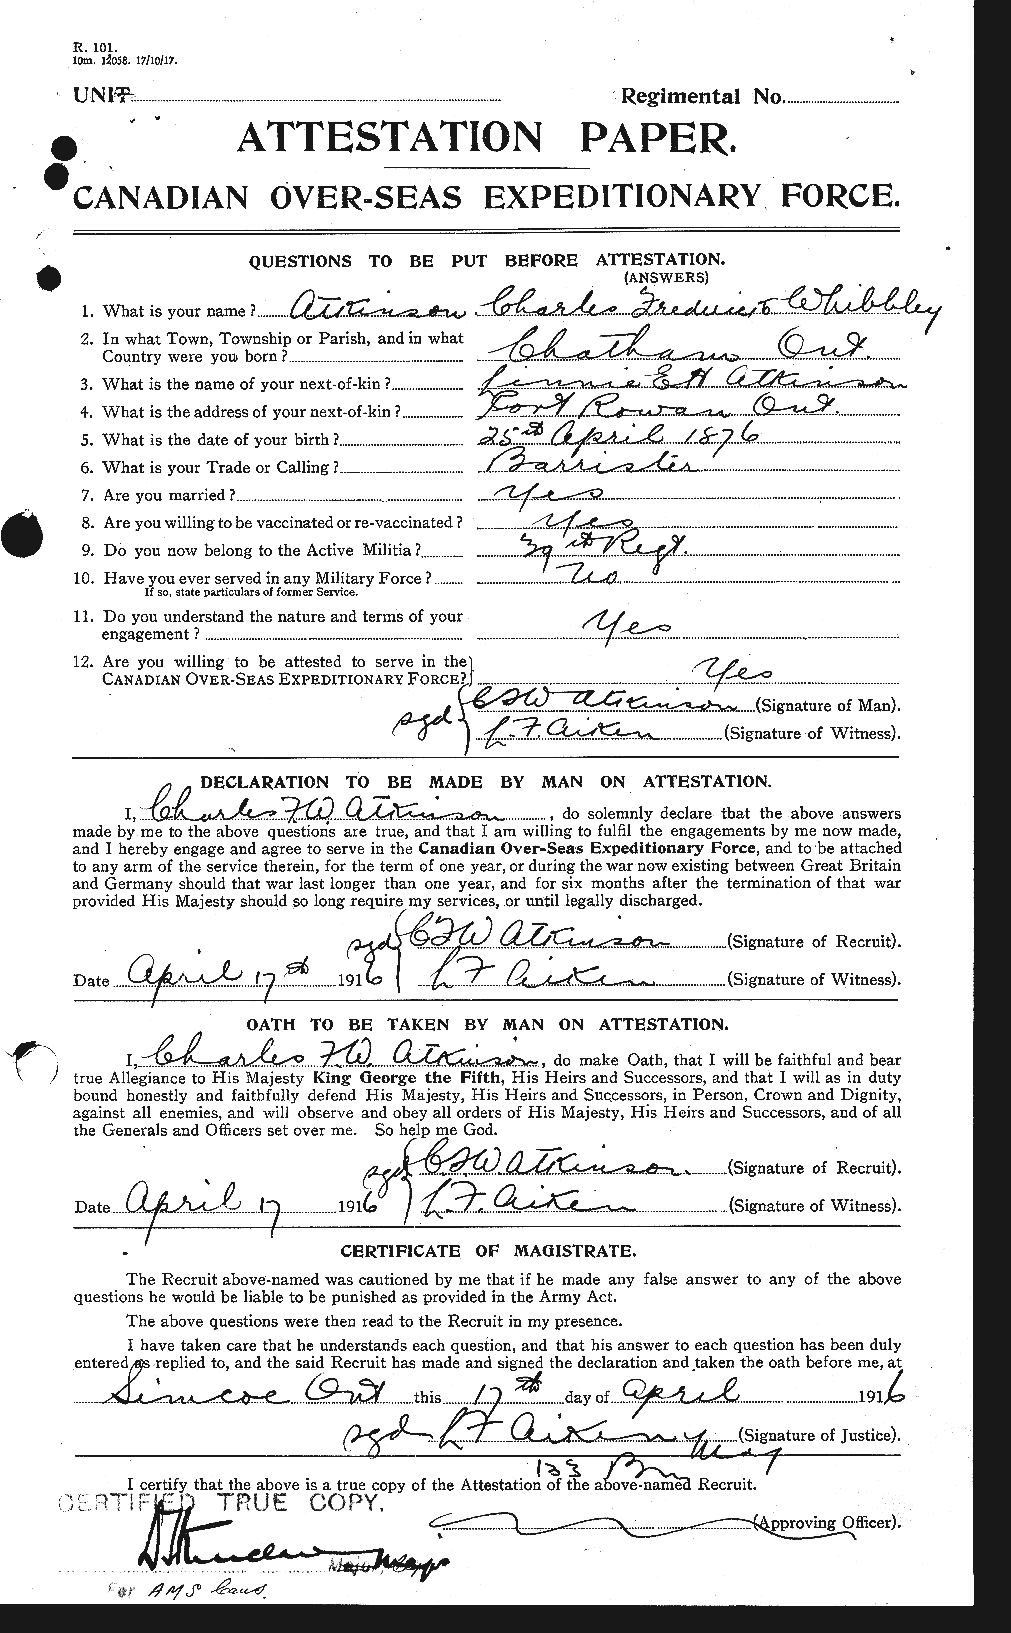 R. 101.
10m. 12058. 17/10/17.
UNIT
Regimental No.
ATTESTATION PAPER.
CANADIAN OVER-SEAS EXPEDITIONARY FORCE.
QUESTIONS TO BE PUT BEFORE ATTESTATION.
(ANSWERS)
1. What is your name ? Atkinson Charles Frederick Whibbley
2. In what Town, Township or Parish, and in what
Country were you born ? Chatham Ont.
3. What is the name of your next-of-kin ? Linnie E H Atkinson
4. What is the address of your next-of-kin ? Port Rowan Ont.
5. What is the date of your birth ? 25th April 1876
6. What is your Trade or Calling ? Barrister
7. Are you married ? Yes
8. Are you willing to be vaccinated or re-vaccinated ? Yes
9. Do you now belong to the Active Militia ? 39th Regt.
10. Have you ever served in any Military Force ? No
If so, state particulars of former Service.
11. Do you understand the nature and terms of your
engagement ? Yes
12. Are you willing to be attested to serve in the
CANADIAN OVER-SEAS EXPEDITIONARY FORCE? Yes
sgd CFW Atkinson (Signature of Man).
L. F. Aiken (Signature of Witness).
DECLARATION TO BE MADE BY MAN ON ATTESTATION.
I, Charles F.W. Atkinson, do solemnly declare that the above answers
made by me to the above questions are true, and that I am willing to fulfil the engagements by me now made,
and I hereby engage and agree to serve in the Canadian Over-Seas Expeditionary Force, and to be attached
to any arm of the service therein, for the term of one year, or during the war now existing between Great Britain
and Germany should that war last longer than one year, and for six months after the termination of that war
provided His Majesty should so long require my services, or until legally discharged.
sgd CFW Atkinson (Signature of Recruit).
Date April 17th 1916 L F Aiken (Signature of Witness).
OATH TO BE TAKEN BY MAN ON ATTESTATION.
I, Charles F.W. Atkinson, do make Oath, that I will be faithful and bear
true Allegiance to His Majesty King George the Fifth, His Heirs and Successors, and that I will as in duty
bound honestly and faithfully defend His Majesty, His Heirs and Successors, in Person, Crown and Dignity,
against all enemies, and will observe and obey all orders of His Majesty, His Heirs and Successors, and of all
the Generals and Officers set over me. So help me God.
sgd CFW Atkinson. (Signature of Recruit).
Date April 17 1916 L. F. Aiken (Signature of Witness).
CERTIFICATE OF MAGISTRATE.
The Recruit above-named was cautioned by me that if he made any false answer to any of the above
questions he would be liable to be punished as provided in the Army Act.
The above questions were then read to the Recruit in my presence.
I have taken care that he understands each question, and that his answer to each question has been duly
entered as replied to, and the said Recruit has made and signed the declaration and taken the oath before me, at
Simcoe Ont this 17th day of April 1916
sgd L F Aiken (Signature of Justice).
133 Bn
I certify that the above is a true copy of the Attestation of the above-named Recruit.
CERTIFIED TRUE COPY.
(Approving Officer).
Major
For AMS Cand.